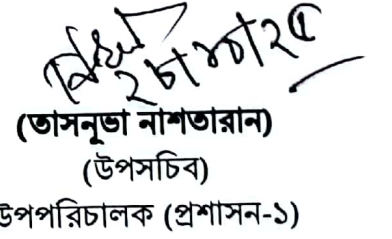 ২৮/০৮/২৫
(তাসনুভা নাশতারান)
(উপসচিব)
উপপরিচালক (প্রশাসন-১)